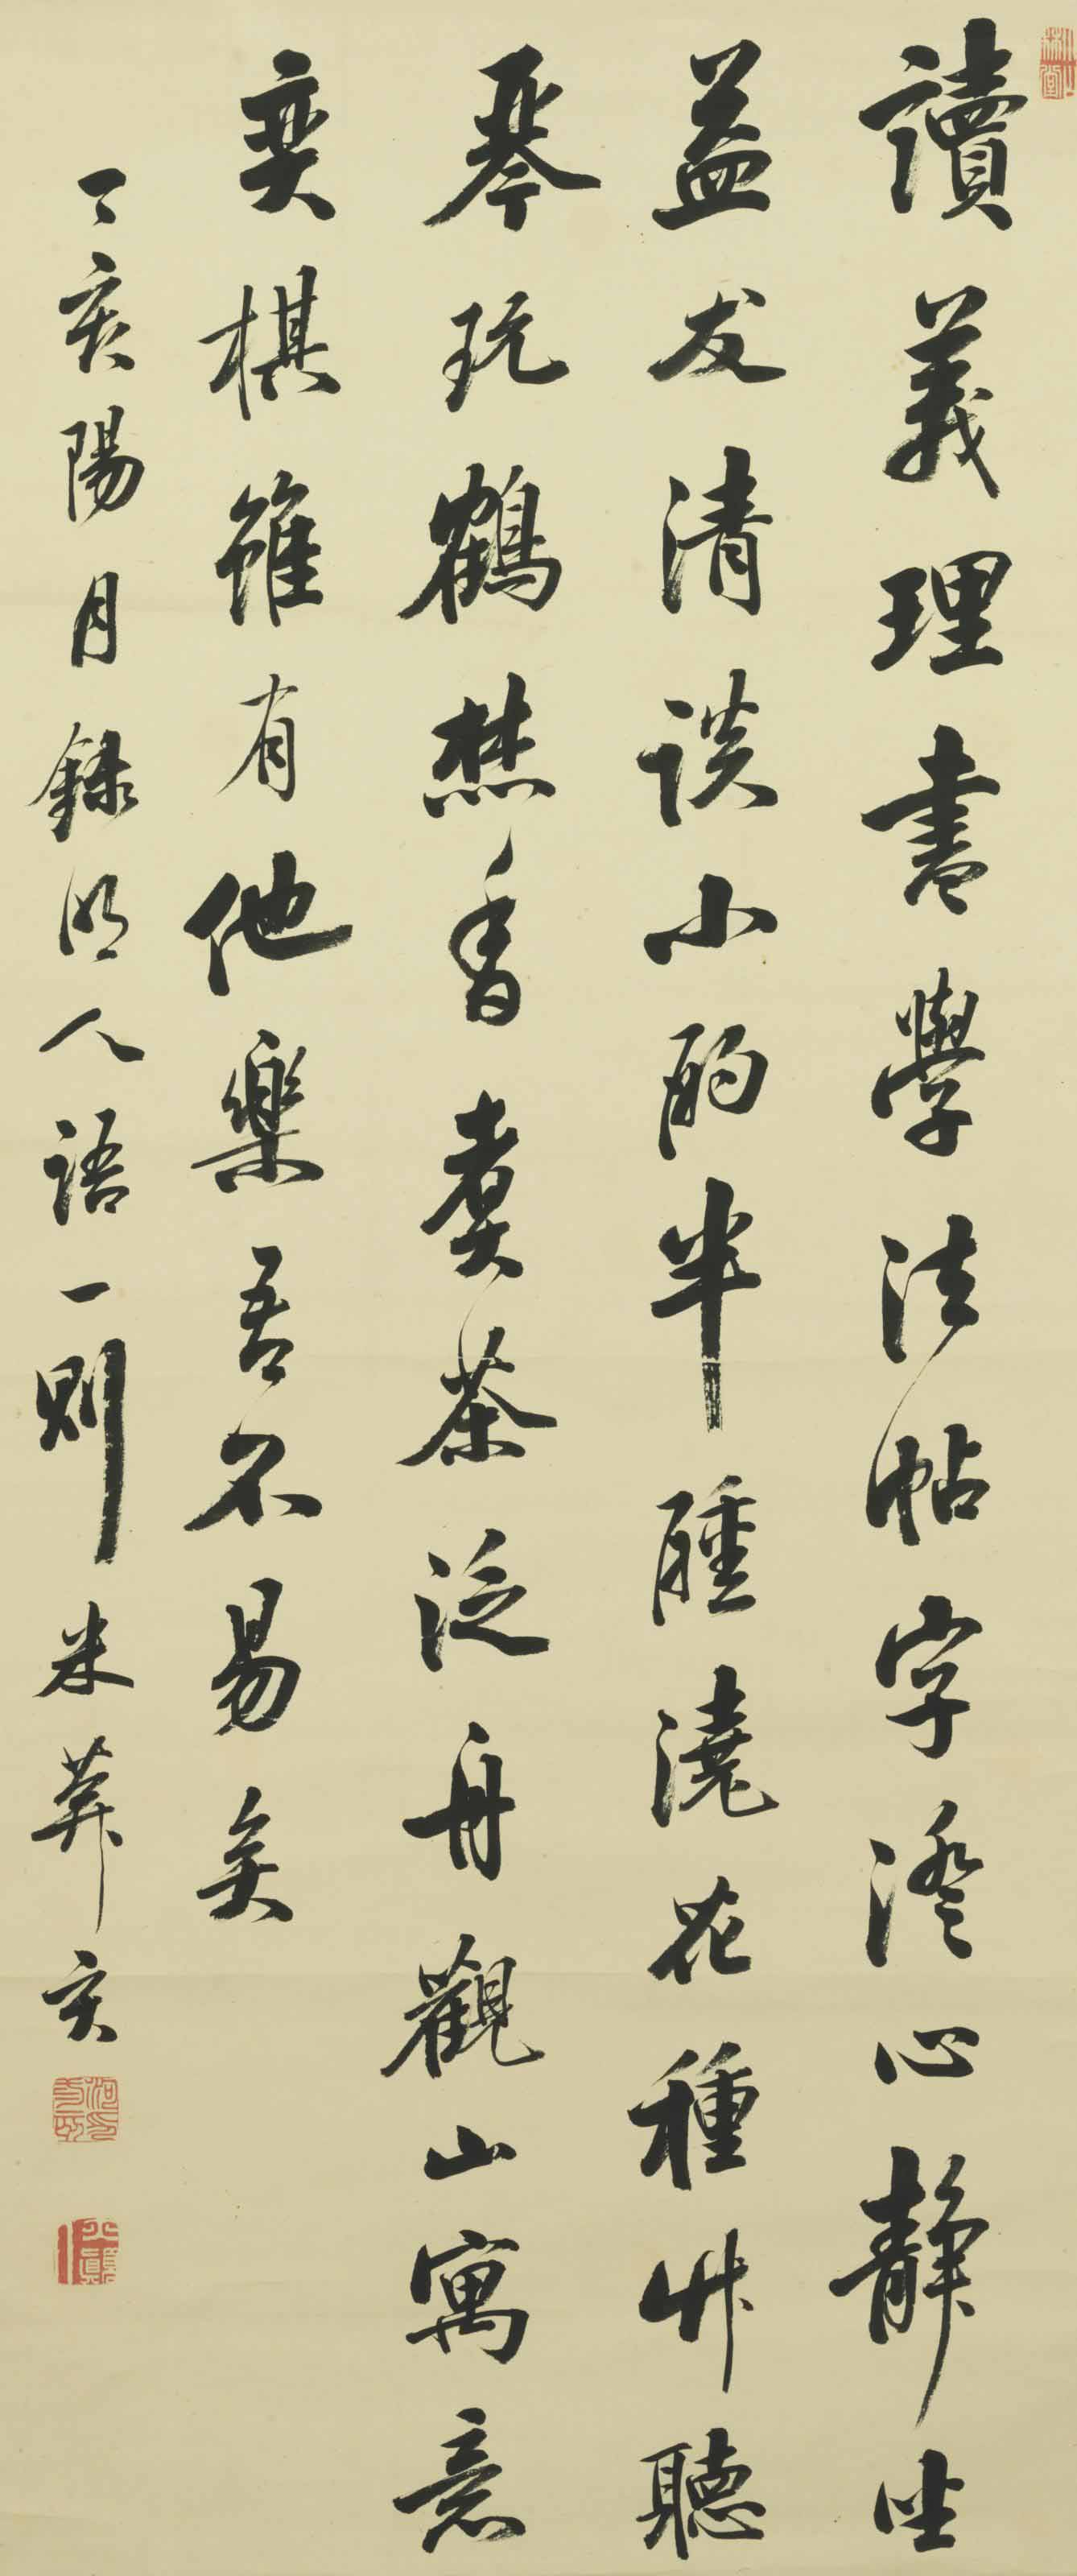 讀義理書學法帖字澄心靜坐
益友清談小酌半醺澆花種艸聽
琴玩鶴焚香煑茶泛舟觀山寓意
奕棋雖有他樂吾不易矣
丁亥陽月錄明人語一則米葊亥